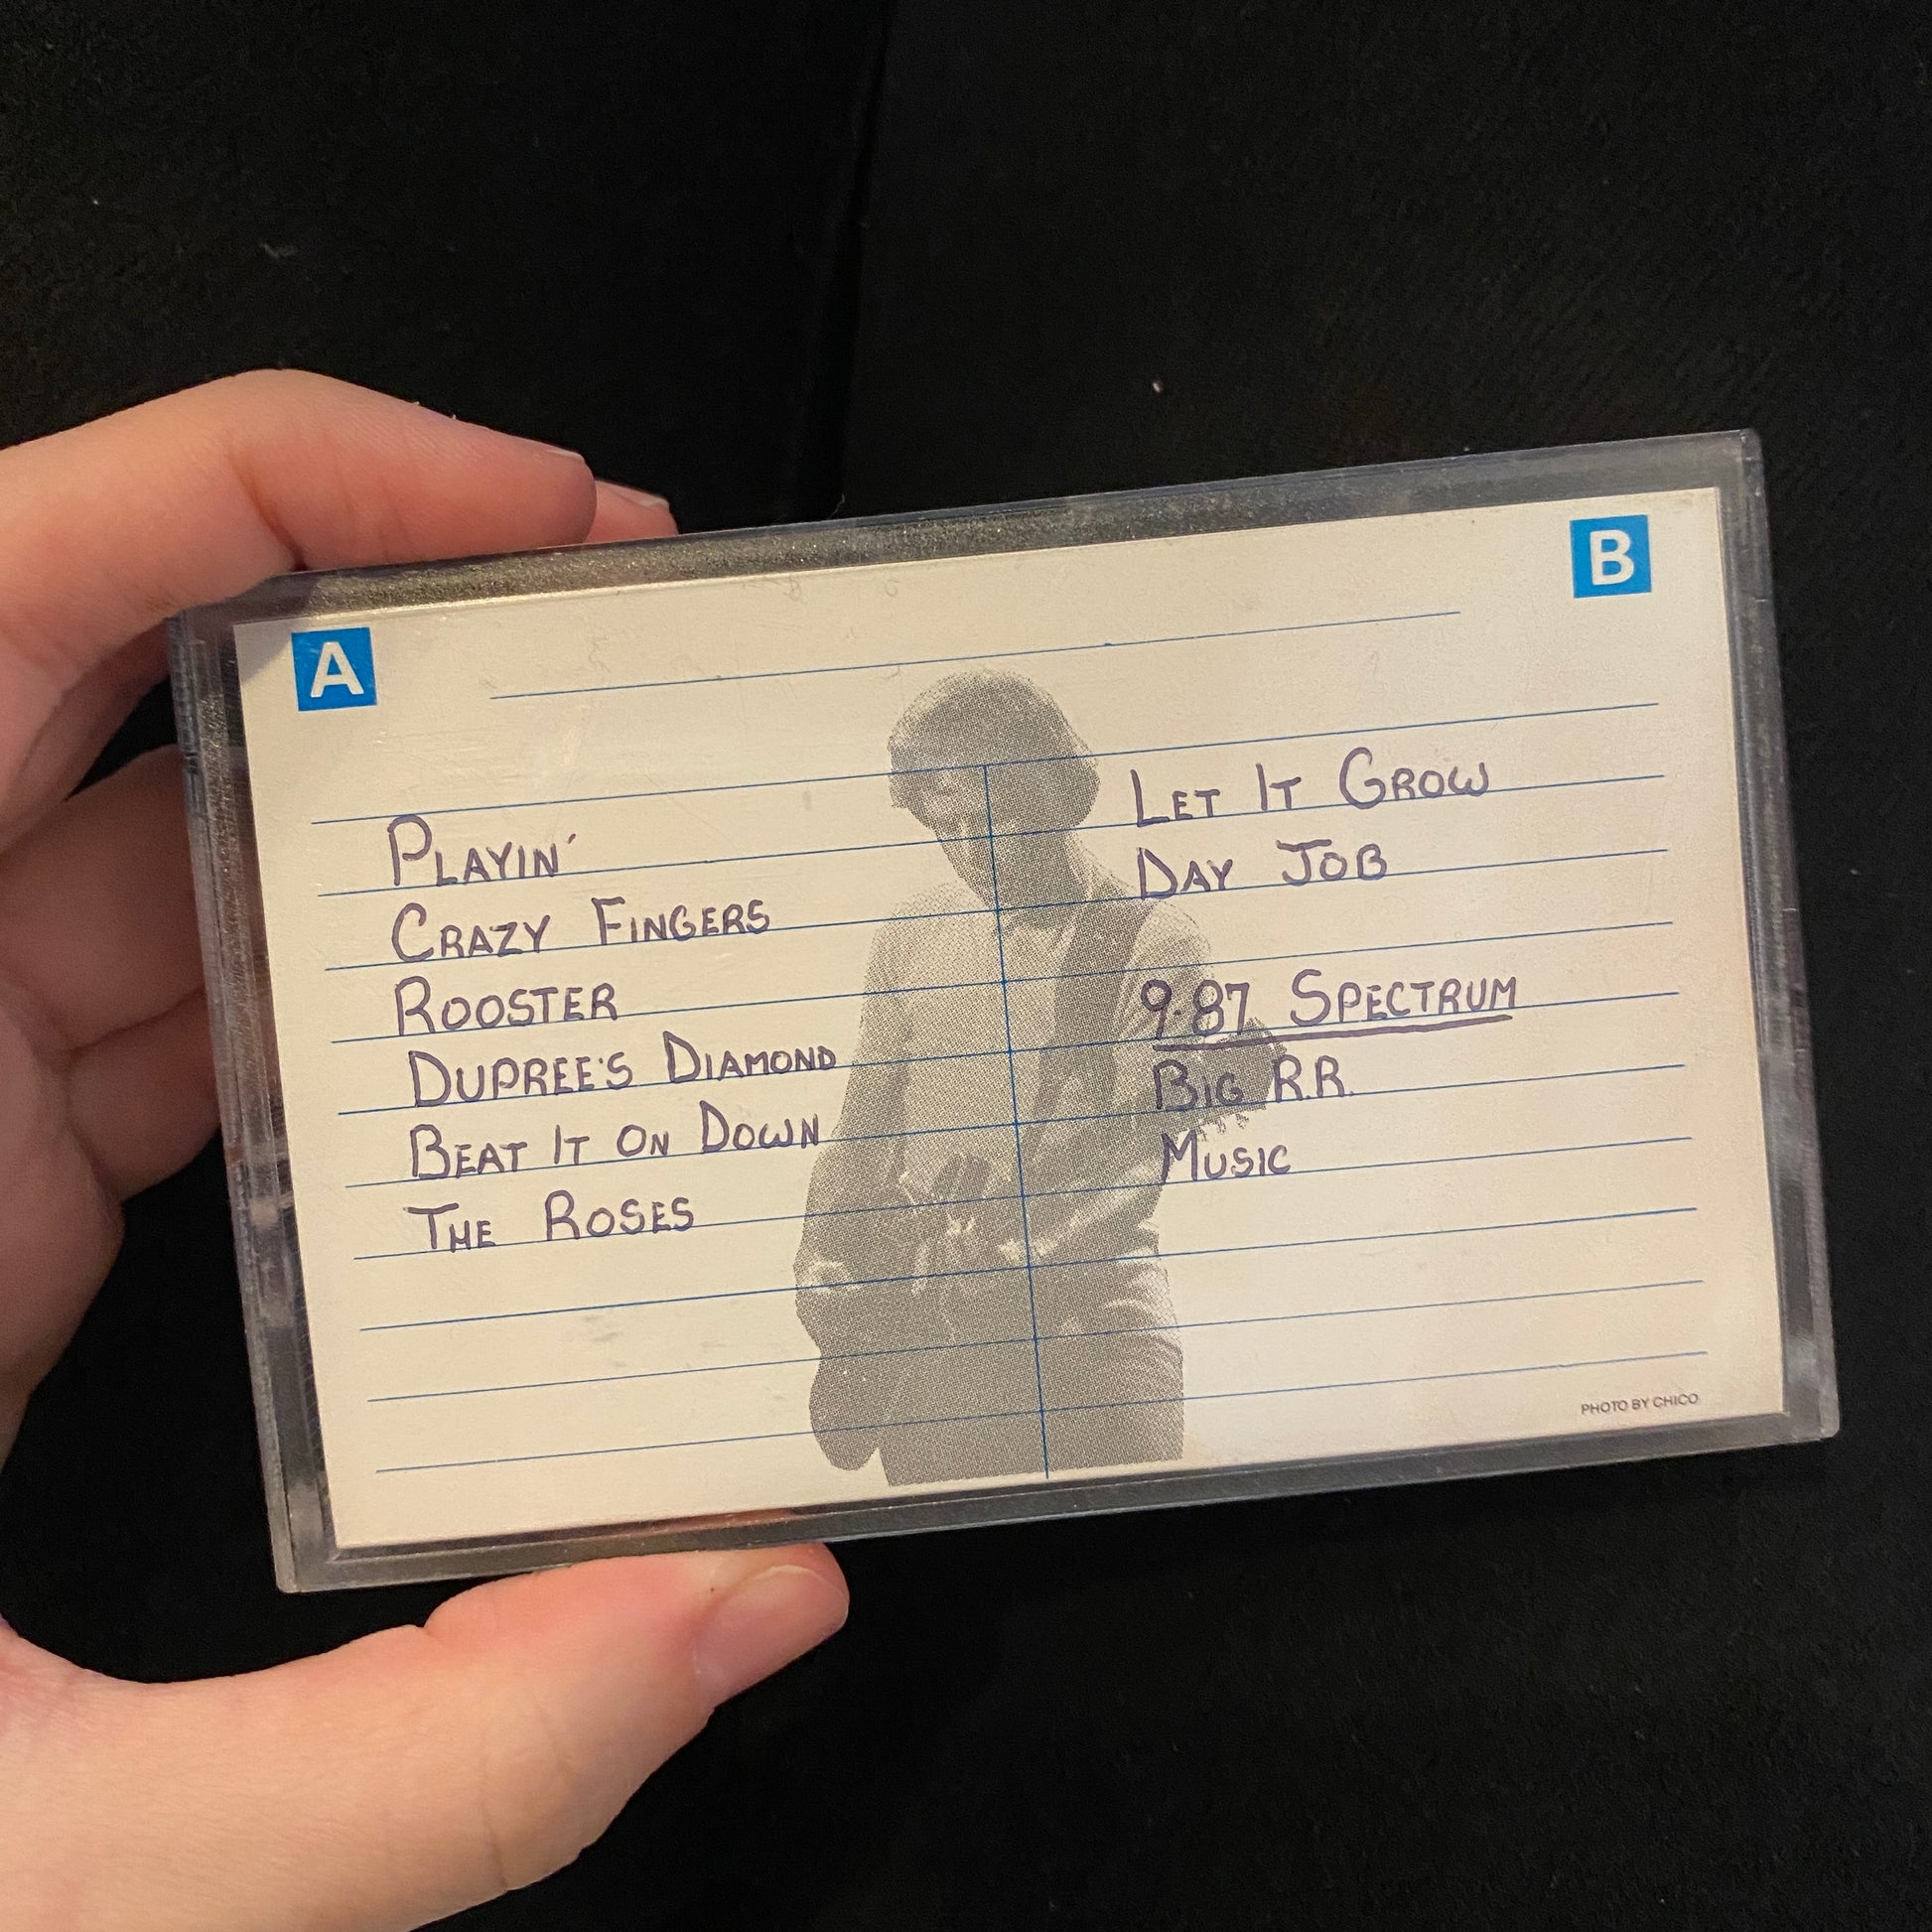 A
PLAYIN'
CRAZY FINGERS
ROOSTER
DUPREE'S DIAMOND
BEAT IT ON DOWN
THE ROSES
B
LET IT GROW
DAY JOB
9·87 SPECTRUM
BIG R.R.
MUSIC
PHOTO BY CHICO